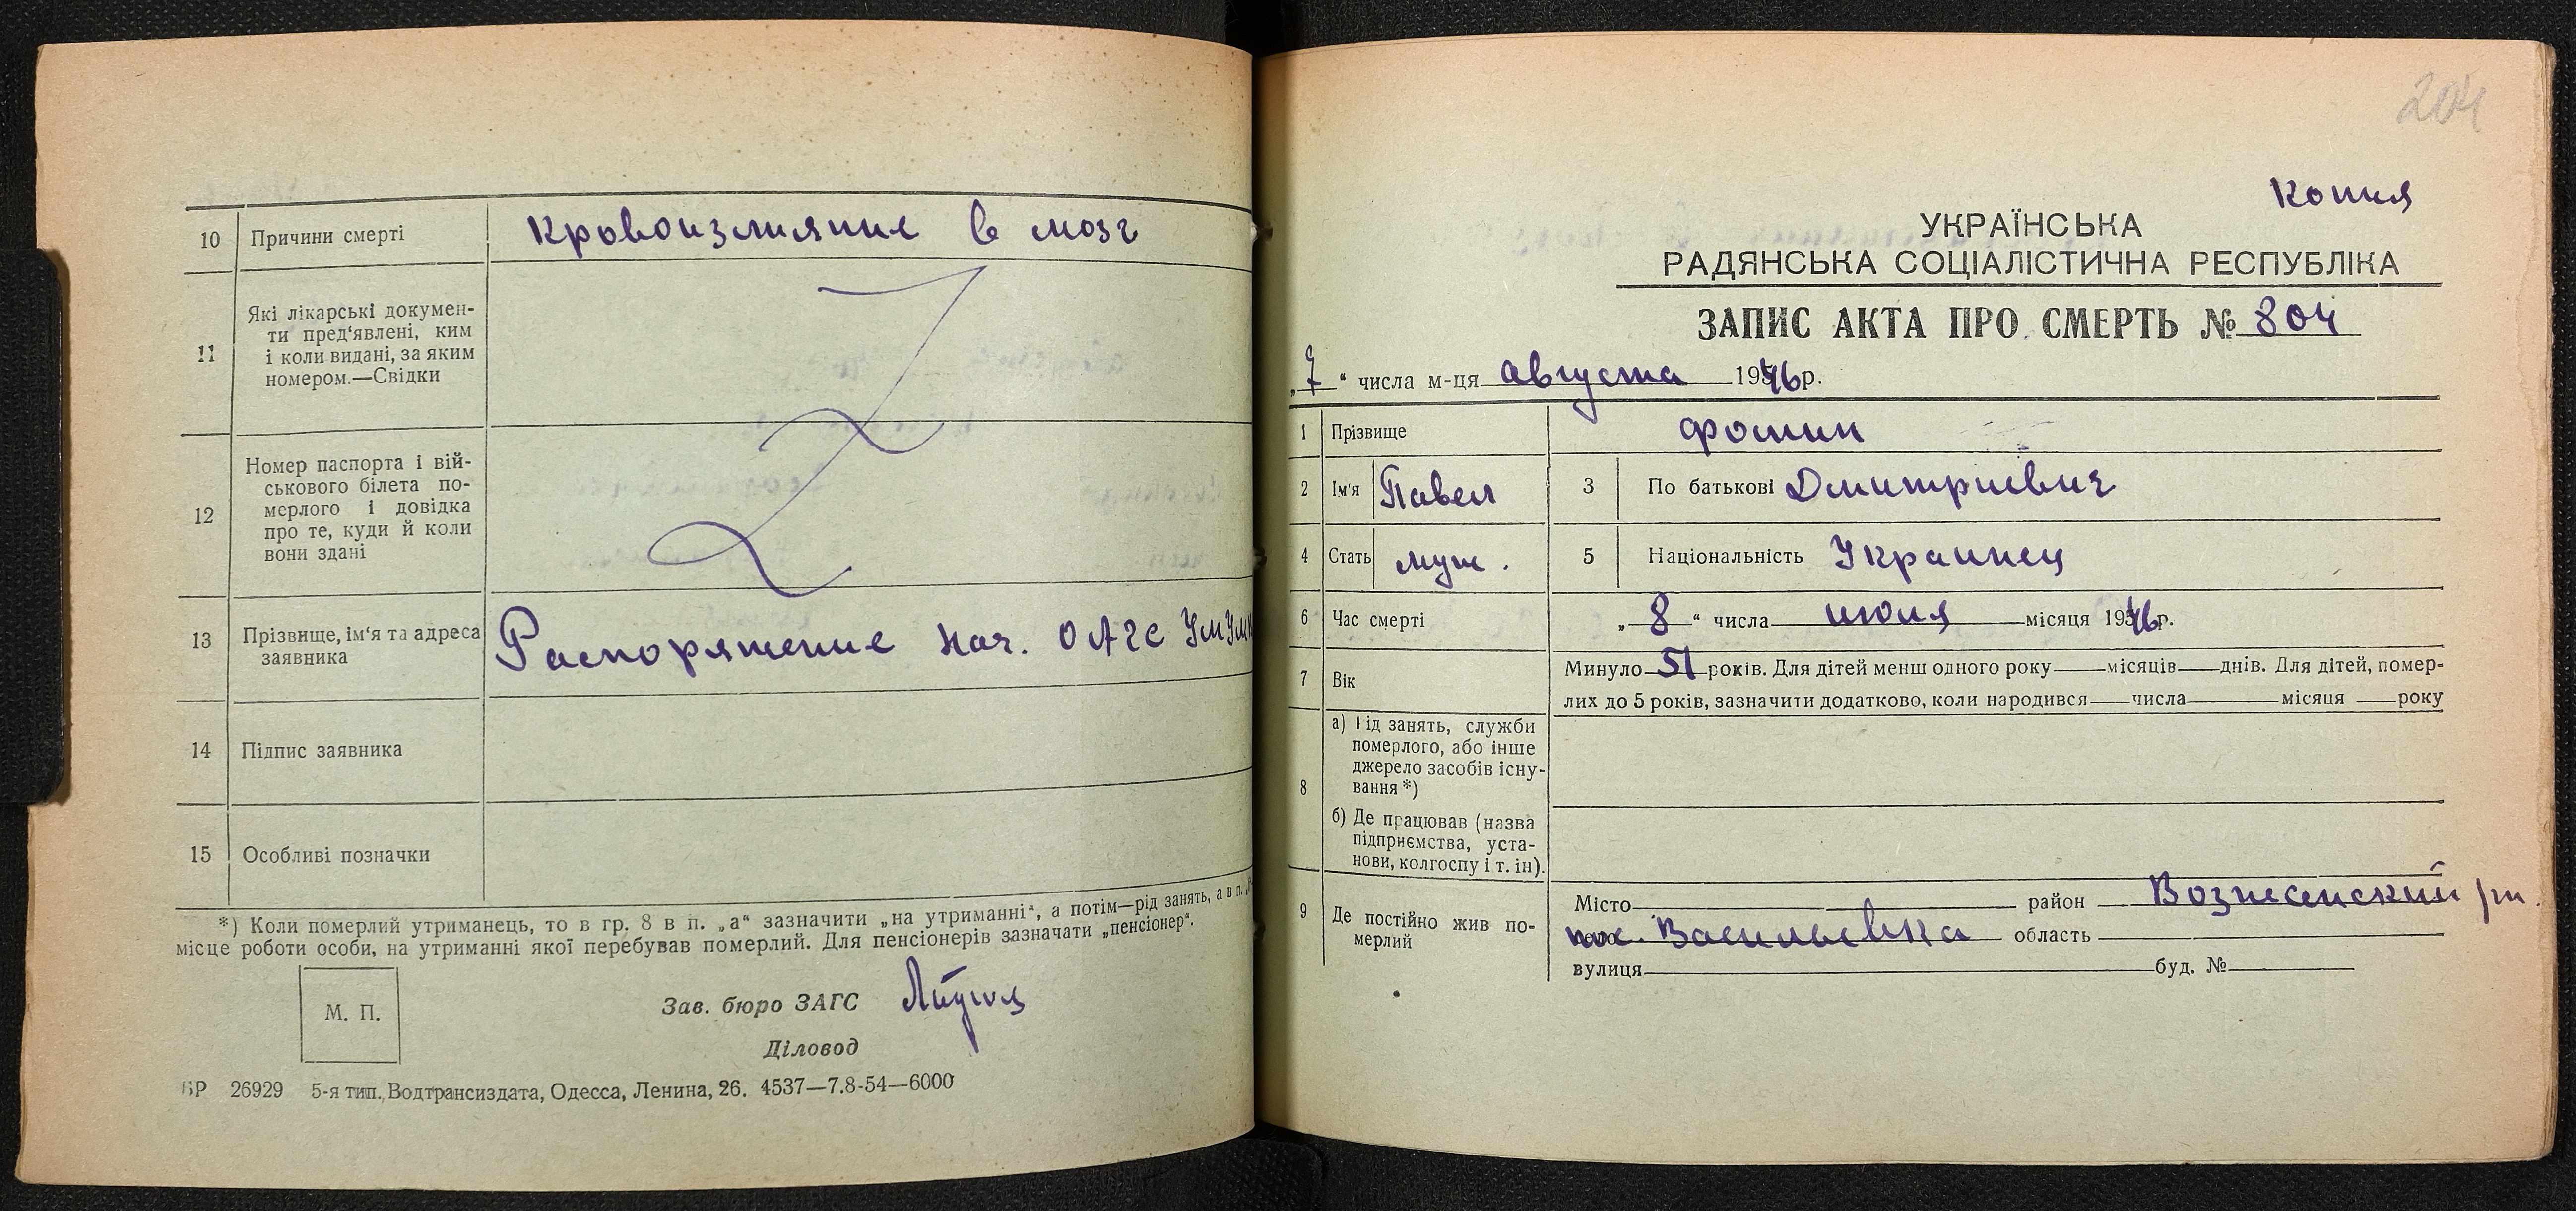 10 Причини смерті Кровоизлияние в мозг
11 Які лікарські докумен-
ти пред'явлені, ким
і коли видані, за яким
номером.—Свідки
12 Номер паспорта і вій-
ськового білета по-
мерлого і довідка
про те, куди й коли
вони здані
13 Прізвище, ім'я та адреса
заявника
Распоряжение нач. ОАГС
14 Підпис заявника
15 Особливі позначки
*) Коли померлий утриманець, то в гр. 8 в п. „а“ зазначити „на утриманні“, а потім—рід занять, а в п.
місце роботи особи, на утриманні якої перебував померлий. Для пенсіонерів зазначати „пенсіонер“.
М. П.
Зав. бюро ЗАГС
Діловод
БР 26929 5-я тип. Водтрансиздата, Одесса, Ленина, 26. 4537—7.8-54—6000
204
Копия
УКРАЇНСЬКА
РАДЯНСЬКА СОЦІАЛІСТИЧНА РЕСПУБЛІКА
ЗАПИС АКТА ПРО СМЕРТЬ № 804
„7“ числа м-ця августа 1946 р.
1 Прізвище Фомин
2 Ім'я Павел 3 По батькові Дмитриевич
4 Стать муж. 5 Національність Украинец
6 Час смерті „8“ числа июля місяця 1946 р.
7 Вік Минуло 51 років. Для дітей менш одного року — місяців — днів. Для дітей, помер-
лих до 5 років, зазначити додатково, коли народився — числа — місяця — року
8 а) Рід занять, служби
померлого, або інше
джерело засобів існу-
вання *)
б) Де працював (назва
підприємства, уста-
нови, колгоспу і т. ін).
9 Де постійно жив по-
мерлий
Місто район Вознесенский р-н.
пос. Васильевка область
вулиця буд. №